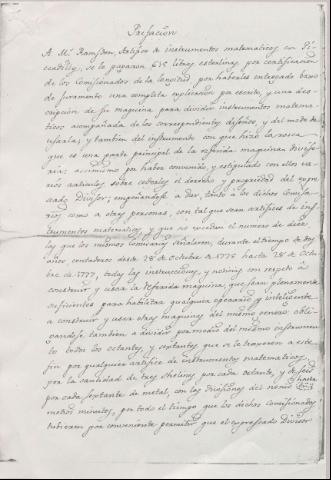 Prefacion
A Mr. Ramsden, Artifice de instrumentos matematicos en Pi-
cadilly, se le pagaron 615 libras esterlinas por certificacion
de los Comisionados de la longitud por haberles entregado baxo
de juramento una completa explicacion por escrito, y una des-
cripcion de su maquina para dividir instrumentos matema-
ticos acompañada de los correspondientes diseños, y del modo de
usarla; y tambien del instrumento con que hizo la rosca
que es una parte principal de la referida maquina diviso-
ria; asimismo por haber convenido, y estipulado con ellos va-
rios articulos sobre cederles el derecho y propiedad del expre-
sado Divisor; empeñandose a dar, tanto à los dichos Comisa-
rios como a otras personas, con tal que sean artifices de ins-
trumentos matematicos y que no excedan el numero de diez
los que los mismos Comisarios señalaren, durante el tiempo de dos
años contaderos desde 28 de Octubre de 1775 hasta 28 de Octu-
bre de 1777, todas las instrucciones, y noticias con respeto à
construir y usar la referida maquina, que sean plenamente
suficientes para habilitar qualquier operario inteligente
a construir y usar otras maquinas del mismo genero: obli-
gandose tambien a dividir por medio del mismo instrumen-
to todos los octantes, y sextantes que se le traxeren a este
fin por qualquier artifice de instrumentos matematicos
por la cantidad de tres shelines por cada octante, y de seis
por cada sextante de metal, con las divisiones del nonio hasta
medios minutos, por todo el tiempo que los dichos comisionados
tubieren por conveniente permitir que el expresado Divisor